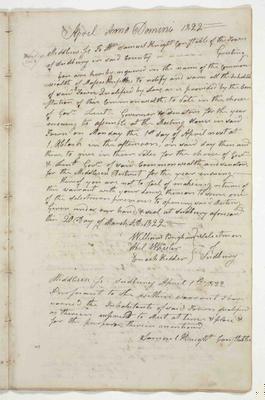 April Anno Domini 1822
Middlesex Ss To Mr Samuel Knight Constable of the Town
of Sudbury in said County Greeting
You are hereby required in the name of the Common
wealth of Massachusetts to notify and warn all the Inhabitants
of said Town qualified by Law as is provided by the Con
stitution of this Commonwealth to vote in the choice
of Govr Lieut. Governor & Senators for the year
ensuing to assemble at the Meeting House in said
Town on Monday the 1st day of April next at
1 Oclock in the afternoon, on said day then and
there to give in their votes for the choice of Govr
& Lieut Govr of said Commonwealth and Senators
for the Middlesex District for the year ensuing
Hereof you are not to fail of making return of
this warrant with your doings thereon to some one of
the selectmen previous to opening said Meeting
Given under our hand & seal at Sudbury aforesaid
the 20 Day of March AD 1822
William Brigham Selectmen
Abel Wheeler of
Enoch Kidder Sudbury
Middlesex Ss Sudbury April 1st 1822
Pursuant to the within warrant I have
warned the Inhabitants of said Town qualified
as therein expressed to meet at time & place &
for the purpose therein mentioned
Samuel Knight Constable